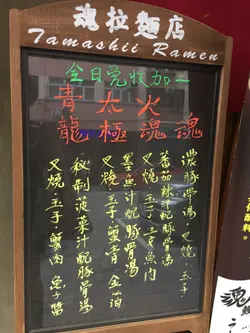 魂拉麵店
Tamashii Ramen
全日免收加一
魂
火魂
太極
青龍
濃豚骨湯
叉燒 玉子
蕃茄辣汁配豚骨湯
叉燒 玉子 魚肉
墨魚汁配豚骨湯
叉燒 玉子 蟹膏 金箔
秘制菠菜汁配豚骨湯
叉燒 玉子 蟹肉 魚子醬
魂